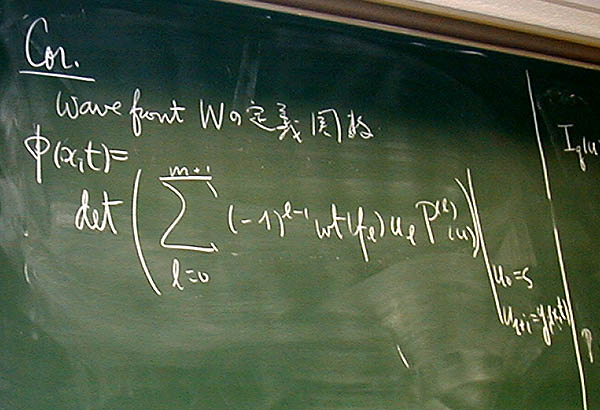 Cor.
Wave front Wの定義関数
φ(x,t)=
det ( Σ_{l=0}^{m+1} (-1)^{l-1} wt(f_l) u_l P^{(l)}(u) ) |
u_0=s